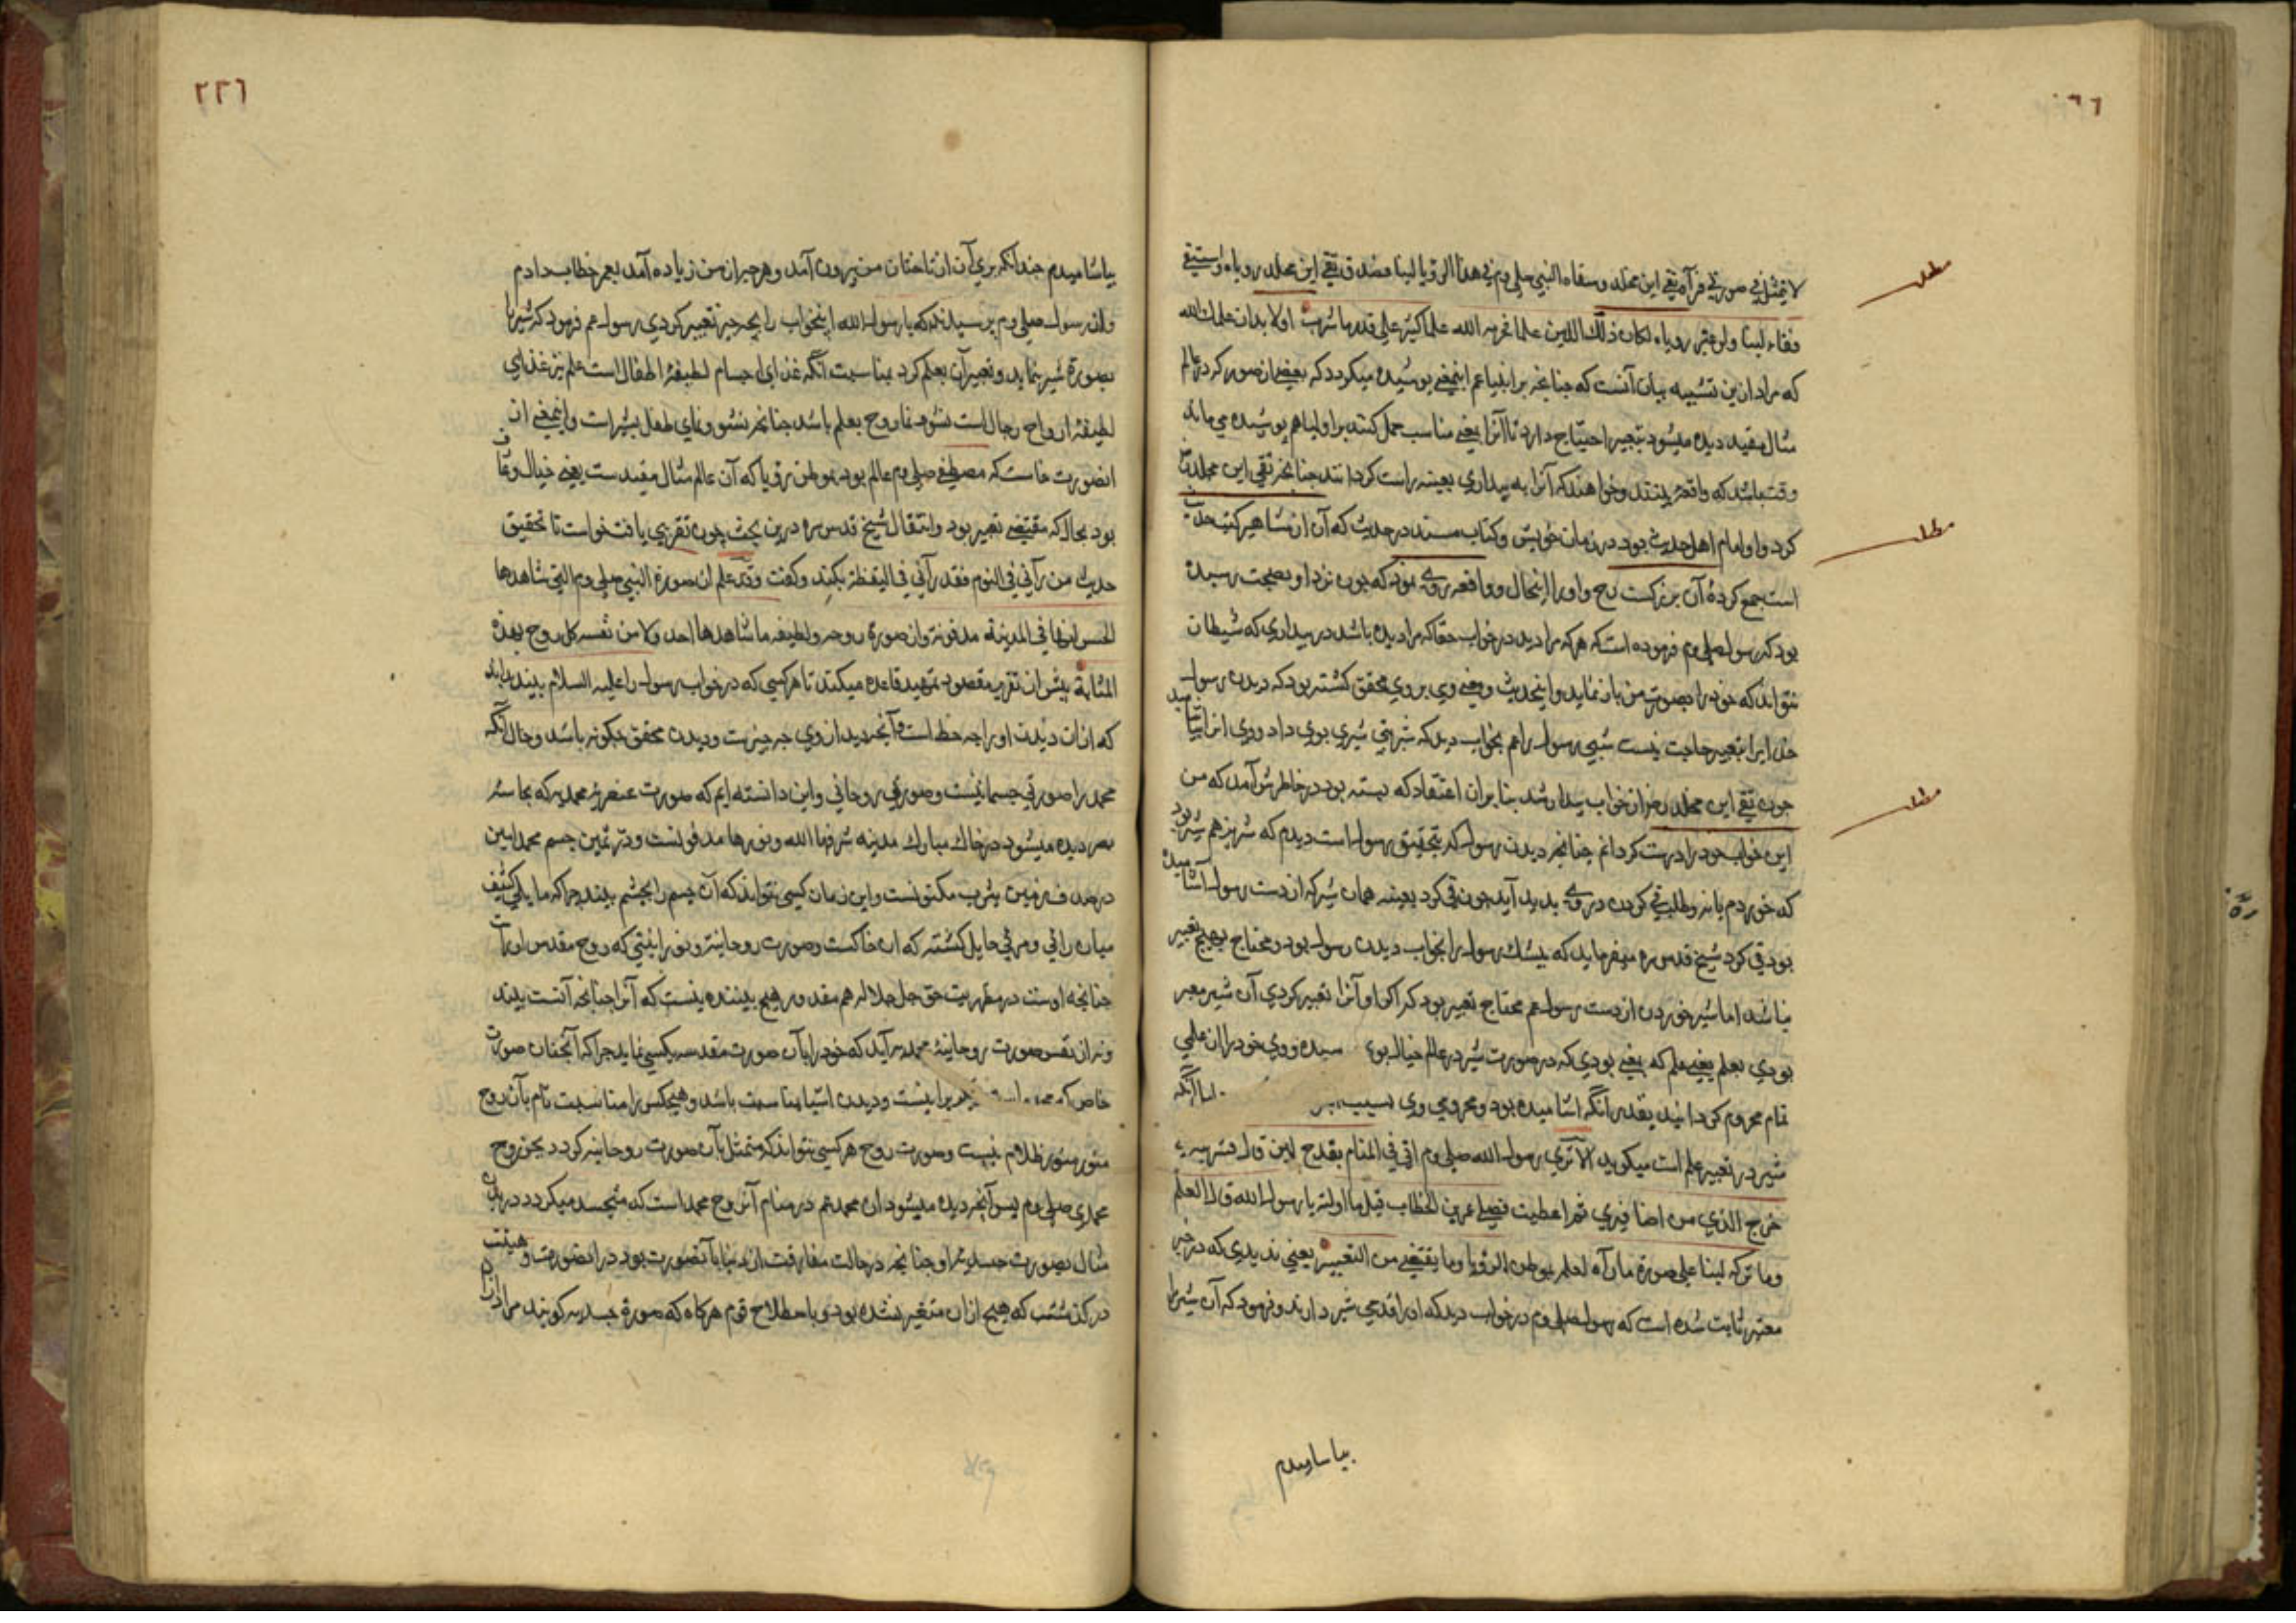 لا یتمثل فی صورتی فرآه تقی ابن مخلد و سقاه النبی صلی وم فی هذا الرؤیا لبنا فصدق تقی ابن مخلد رویاه و استقی
فقاء لبنا ولو عبر رویاه لکان ذلک اللبن علما غزیره الله علما کثیر علی قدر ما شرب اولا بدان علمک الله
که مراد ازین تشبیه بیان آنست که چنانچه بر انبیا عم اینمعنی پوشیده میکردد که بعضی از صور که در عالم
مثال مقید دیده میشود بتعبیر احتیاج دارد تا آنرا بمعنی مناسب حمل کنند بر اولیا هم پوشیده می ماند
وقت باشد که واقعه بینند و خواهند که آنرا به بیداری بعینه راست کردانند چنانچه تقی ابن مخلد
کرد و او امام اهل حدیث بود در زمان خویش و کتاب مسند در حدیث که آن از مشاهیر کتب حدیث
است جمع کردهٔ آن بزرکست رح و او را اینحال و واقعه روی نمود که چون نزد او بصحت رسیده
بود که رسول صلی وم فرموده است که هر که مرا دید در خواب حقا که مرا دیده باشد در بیداری که شیطان
نتواند که خود را بصورت من باز نماید و اینحدیث و معنی وی بروی محقق کشته بود که دیدن رسول
خدایرا بتعبیر حاجت نیست شبی رسول را عم بخواب دید که شربتی شیری بوی داد و وی انرا بیاشامید
چون تقی ابن مخلد رح از خواب بیدار شد بنا بر ان اعتقاد که بسته بود در خاطرش آمد که من
این خواب خود را درست کردانم چنانچه دیدن رسول که بتحقیق رسول است دیدم که شیر نیز هم شیر بود
که خوردم یا نه و طلب قی کردن در وی پدید آید چون قی کرد بعینه همان شیر که از دست رسول آشامیده
بود قی کرد شیخ قدس سره میفرماید که بیشک رسول را بخواب دیدن رسول بود و محتاج بهیچ تعبیر
نباشد اما شیر خوردن از دست رسول عم محتاج تعبیر بود که اکر او آنرا تعبیر کردی آن شیر معبر
بودی بعلم یعنی علم که بمعنی بودی که در صورت شیر در عالم خیال بوی سیده و وی خود را از ان علمی
تمام محروم کردانید بقدر آنکه اشامیده بود و محرومی وی بسبب اما آنکه
شیر در تعبیر علم است میکوید الا تری رسول الله صلی وم اتی فی المنام بقدح لبن قال فشربته
خرج الذی من اضافیری ثم اعطیت فضلی عمر بن الخطاب قیل ما اولته یا رسول الله قال العلم
وما ترکه لبنا علی صورة ما رآه لعلمه بموطن الرؤیا وما یقتضی من التعبیر یعنی ندیدی که در خبر
معتبر ثابت شده است که رسول صلی وم در خواب دید که او را قدحی شیر دارند و فرمود که آن شیر را
بیاشامیدم
٢٢٦
بیاشامیدم چندانکه بری آن از ناخنان من بیرون آمد و هر چه از من زیاده آمد بعمر خطاب دادم
و از رسول صلی وم پرسیدند که یا رسول الله اینخواب را بچه چیز تعبیر کردی رسول عم فرمود که شیر را
بصورة شیر بنماید و تعبیر آن بعلم کرد بمناسبت آنکه غذای اجسام لطیفهٔ اطفال است علم نیز غذای
لطیفهٔ ارواح رجال است نشود نما روح بعلم باشد چنانچه نشو و نمای طفل بشیر است و اینمعنی از
انصورت خاست که مصطفی صلی وم عالم بود بموطن رؤیا که آن عالم مثال مقیدست یعنی خیال واقف
بود بحال که مقتضی تعبیر بود و انتقال شیخ قدس سره درین بحث چون تقریبی یافت خواست تا تحقیق
حدیث من رآنی فی النوم فقد رآنی فی الیقظة بکند و کفت وقد علم ان صورة النبی صلی وم التی شاهدها
الحس انها فی المدینة مدفونة وان صورة روحه ولطیفه ما شاهدها احد ولا من نفسه کل روح بهذه
المثابة پیش از تقریر مقصود تمهید قاعده میکند تا هر کسی که در خواب رسول را علیه السلام بیند بداند
که از ان دیدن او را چه حظ است و آنچه دید از وی چه چیزست و دیدن محقق چکونه باشد و حال آنکه
محمد را صورتی جسمانیست و صورتی روحانی و این دانسته ایم که صورت عنصریهٔ محمدیه که بحاسه
بصر دیده میشود در خاک مبارک مدینه شرفها الله و نورها مدفونست و در ثمین جسم محمد امین
در صدف زمین یثرب مکنونست و این زمان کسی نتواند که آن جسم را بچشم بیند چرا که حایلی کثیف
میان رائی و مرئی حایل کشته که ان خاکست و صورت روحانیة و نورانیتی که روح مقدس او راست
چنانچه اوست در مظهریت حق جل جلاله هم مقدور هیچ بیننده نیست که آنرا چنانچه آنست ببیند
و نه از نفس صورت روحانیهٔ محمدیه آید که خود را بآن صورت مقدسه بکسی نماید چرا که آنچنان صورت
خاص که محمد است برا نیست و دیدن اشیا بمناسبت باشد و هیچکس را مناسبت تام بآن روح
منور منور ظلام نیست و صورت روح هر کسی نتواند که متمثل بآن صورت روحانیه کردد بجز روح
محمدی صلی وم پس آنچه دیده میشود از محمد عم در منام آن روح محمد است که متجسد میکردد در بدن
مثال بصورت جسدیهٔ او چنانچه در حالت مفارقت از دنیا بآنصورت بود در انصورت و هیئت
درکذشت که هیچ از ان متغیر نشده بود و باصطلاح قوم هرکاه که صورة جسدیه کویند مراد از